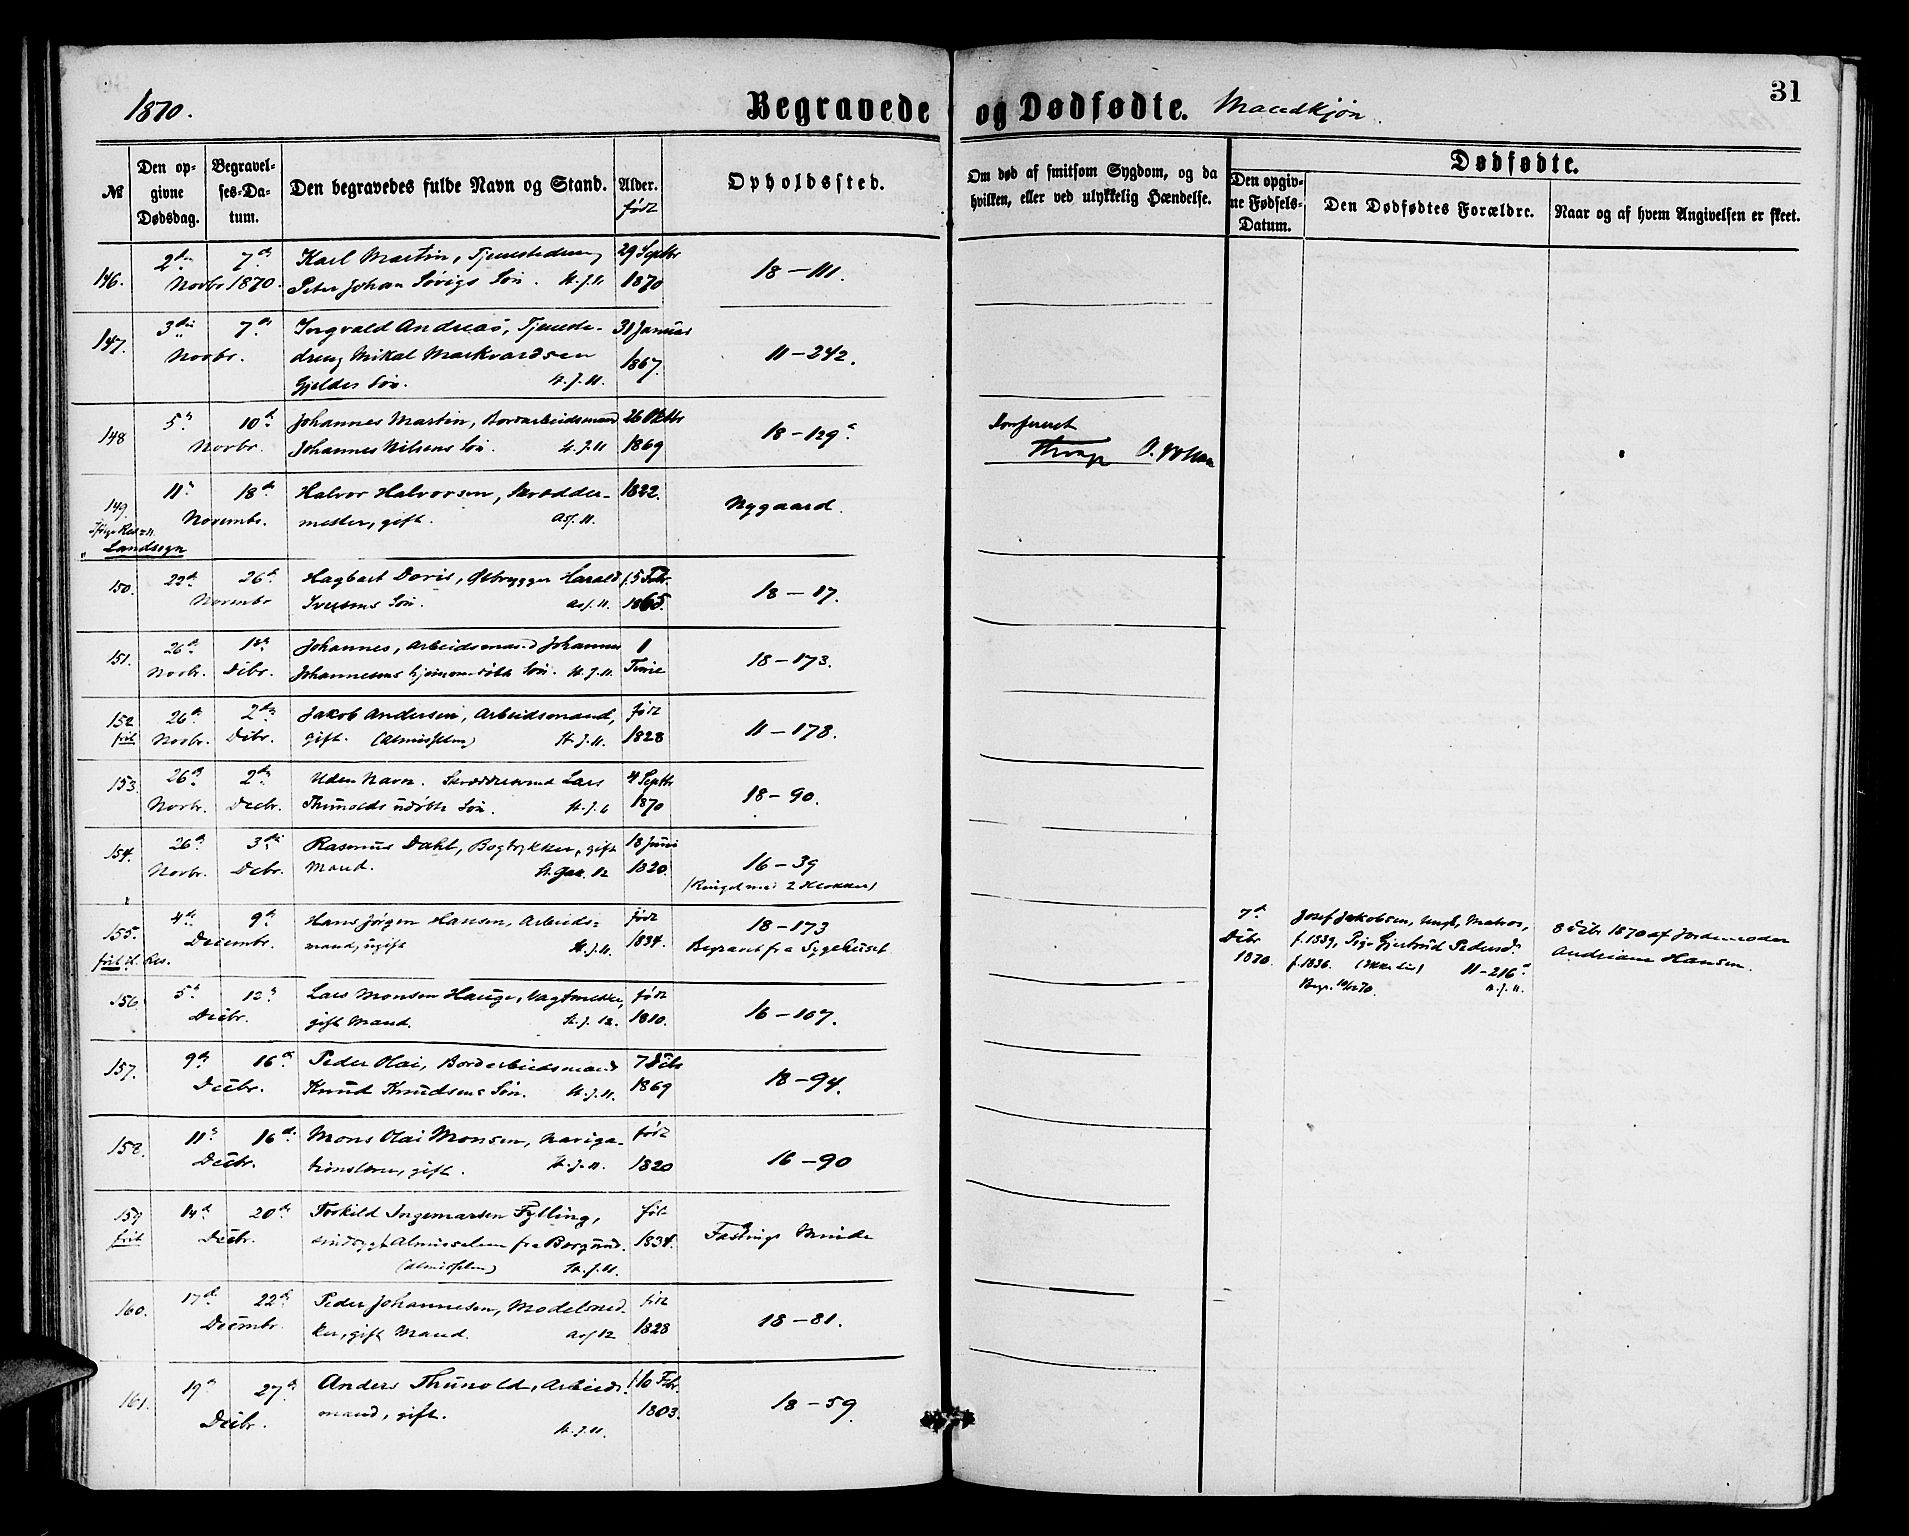 1870. Begravede og Dødfødte. Mandkjøn. 31
№
Den opgivne Dødsdag.
Begravelses-Datum.
Den begravedes fulde Navn og Stand.
Alder. født
Opholdssted.
Om død af smitsom Sygdom, og da hvilken, eller ved ulykkelig Hændelse.
Dødfødte.
Den opgivne Fødsels-Datum.
Den Dødfødtes Forældre.
Naar og af hvem Angivelsen er skeet.
146. 2den 7de Karl Martin, Tjenestedreng 29 Septbr
Novbr 1870. Peter Johan Søvigs Søn. St. J. 11 1870 18-111.
147. 3die 7de Ingvald Andreas, Tjeneste- 31 Januar
Novbr. dreng Mikal Markvardsen 1867. 11-242.
Gjeldes Søn. St. J. 11.
148 5te 10de Johannes Martin, Bordarbeidsmand 26 Oktbr 18-129a
Novbr. Johannes Nilsens Søn. St. J. 11 1869
Konfereret
149. 11te 18de Halvor Halvorsen, Skrædder- 1822. Nygaard.
Novembr. mester, gift. Ass. 11.
Landsogn
150. 22de 26de Hagbart Doris, Ølbrygger Harald 15 Febr. 18-17.
Novembr Iversens Søn. Ass. 11. 1865.
151. 26de 1ste Johannes, Arbeidsmand Johannes 1 18-173.
Novbr. Debr. Johannesens hjemmedøbte Søn. St. J. 11 Time
152 26de 2den Jakob Andersen, Arbeidsmand, født 11-178.
frit Novbr. Debr. gift. (Almisselem) St. J. 11. 1828
153. 26de 2den Uden Navn. Skræddersvend Lars 4 Septbr 18-90.
Novbr. Decbr. Thunolds udøbte Søn. St. J. 6 1870
154. 26de 3die Rasmus Dahl, Bogtrykker, gift 18 Juni 16-39
Novbr. Debr. Mand. 1820. (Ringet med 2 Klokker)
155. 4de 9de Hans Jørgen Hansen, Arbeids- født 18-173
Decembr. mand, ugift St. J. 11. 1834. Begravet fra Sygehuset
7de Josef Jakobsen, Ungk., Matros, 8 Debr 1870 af Jordemoder
Debr f. 1839, Pige Gjertrud Pedersd. Andriane Hansen.
1870. f. 1836. 11-216a
Begr. 10/12 70. St. J. 11.
156. 5te 12te Lars Monsen Hauge, Vagtmester, født 16-107.
Decbr. gift Mand. St. J. 12. 1810.
157. 9de 16de Peder Olai, Bordarbeidsmand 7 Debr 18-94.
Decbr. Knud Knudsens Søn. St. J. 11. 1869
158. 11te 16de Mons Olai Monsen, Naviga- født 16-90
Decbr. tionslærer, gift. St. J. 11. 1820
159 14de 20de Torkild Ingemarsen Fylling, født
frit Decbr. sindssygt Almisselem fra Borgund. 1834. Fastings Minde
(Almisselem) St. J. 11.
160. 17de 22de Peder Johannesen, Modelsned- født 18-81.
Decembr. ker, gift Mand. Ass. 12 1828
161. 19de 27de Anders Thunold, Arbeids- 16 Febr. 18-59
Decbr. mand, gift. 1803.
St. J. 11.